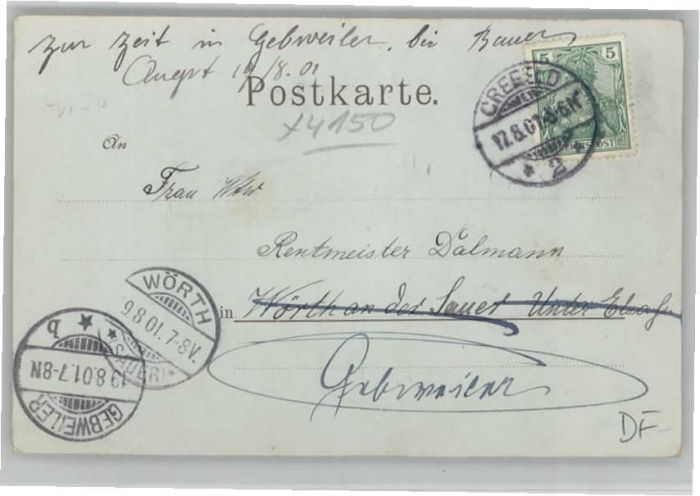 Zur Zeit in Gebweiler, bei Bauer
August 19/8.01
Postkarte.
x4150
5 5
CREFELD
17.8.01 5-6N
* 2 *
An
Frau Wtw
Rentmeister Dalmann
in Wörth an der Sauer Unter Elsaß
Gebweiler
WÖRTH
9 8 01. 7-8V.
* (SAUER) *
GEBWEILER
19.8.01. 7-8N
* b
DF